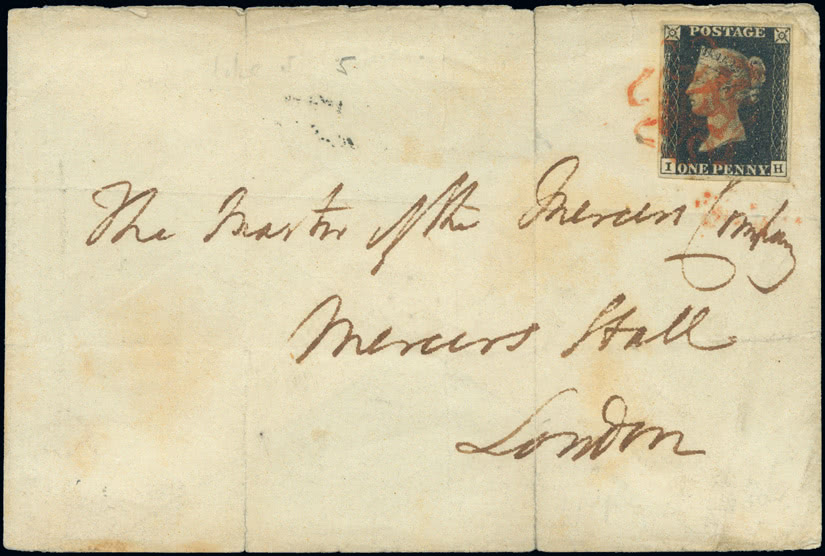 POSTAGE
I ONE PENNY H
The Master of the Mercers Company
Mercers Hall
London